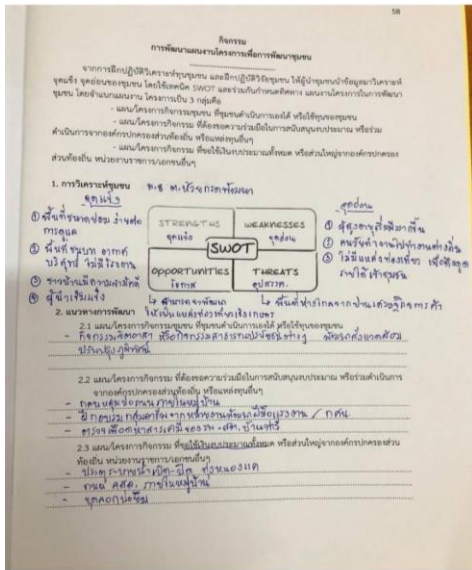 58
กิจกรรม
การพัฒนาแผนงานโครงการเพื่อการพัฒนาชุมชน
จากการฝึกปฏิบัติวิเคราะห์ทุนชุมชน และฝึกปฏิบัติวิจัยชุมชน ให้ผู้นำชุมชนนำข้อมูลมาวิเคราะห์
จุดแข็ง จุดอ่อนของชุมชน โดยใช้เทคนิค SWOT และร่วมกันกำหนดทิศทาง แผนงานโครงการในการพัฒนา
ชุมชน โดยจำแนกแผนงาน โครงการเป็น 3 กลุ่มคือ
- แผน/โครงการกิจกรรมชุมชน ที่ชุมชนดำเนินการเองได้ หรือใช้ทุนของชุมชน
- แผน/โครงการกิจกรรม ที่ต้องขอความร่วมมือในการสนับสนุนงบประมาณ หรือร่วม
ดำเนินการจากองค์กรปกครองส่วนท้องถิ่น หรือแหล่งทุนอื่นๆ
- แผน/โครงการกิจกรรม ที่ขอใช้เงินงบประมาณทั้งหมด หรือส่วนใหญ่จากองค์กรปกครอง
ส่วนท้องถิ่น หน่วยงานราชการ/เอกชนอื่นๆ
1. การวิเคราะห์ชุมชน ม.8 ต.ห้วย
จุดแข็ง
จุดอ่อน
① พื้นที่ขนาดย่อม ง่ายต่อ
การดูแล
② พื้นที่ชนบท อากาศ
บริสุทธิ์ ไม่มีโรงงาน
③ ชาวบ้านมีความสามัคคี
④ ผู้นำเข้มแข็ง
STRENGTHS
จุดแข็ง
WEAKNESSES
จุดอ่อน
SWOT
OPPORTUNITIES
โอกาส
THREATS
อุปสรรค
① ผู้สูงอายุเริ่มมีมากขึ้น
② คนวัยทำงานไปทำงานต่างถิ่น
③ ไม่มีแหล่งท่องเที่ยว เพื่อดึงดูด
รายได้เข้าชุมชน
↳ สามารถพัฒนา
ให้เป็นแหล่งท่องเที่ยวเชิงเกษตร
↳ พื้นที่ห่างไกลจากย่านเศรษฐกิจการค้า
2. แนวทางการพัฒนา
2.1 แผน/โครงการกิจกรรมชุมชน ที่ชุมชนดำเนินการเองได้ หรือใช้ทุนของชุมชน
- กิจกรรมจิตอาสา หรือกิจกรรมสาธารณประโยชน์ต่างๆ พัฒนาสิ่งแวดล้อม
ปรับปรุงภูมิทัศน์
2.2 แผน/โครงการกิจกรรม ที่ต้องขอความร่วมมือในการสนับสนุนงบประมาณ หรือร่วมดำเนินการ
จากองค์กรปกครองส่วนท้องถิ่น หรือแหล่งทุนอื่นๆ
- ถนนภายในหมู่บ้าน
- ฝึกอบรมกลุ่มอาชีพจากหน่วยงานพัฒนาฝีมือแรงงาน / กศน.
- ตรวจเลือดหาสารเคมี
2.3 แผน/โครงการกิจกรรม ที่ขอใช้เงินงบประมาณทั้งหมด หรือส่วนใหญ่จากองค์กรปกครองส่วน
ท้องถิ่น หน่วยงานราชการ/เอกชนอื่นๆ
- ประตูระบายน้ำเปิด-ปิด
- ถนน คสล. ภายในหมู่บ้าน
- ขุดลอก